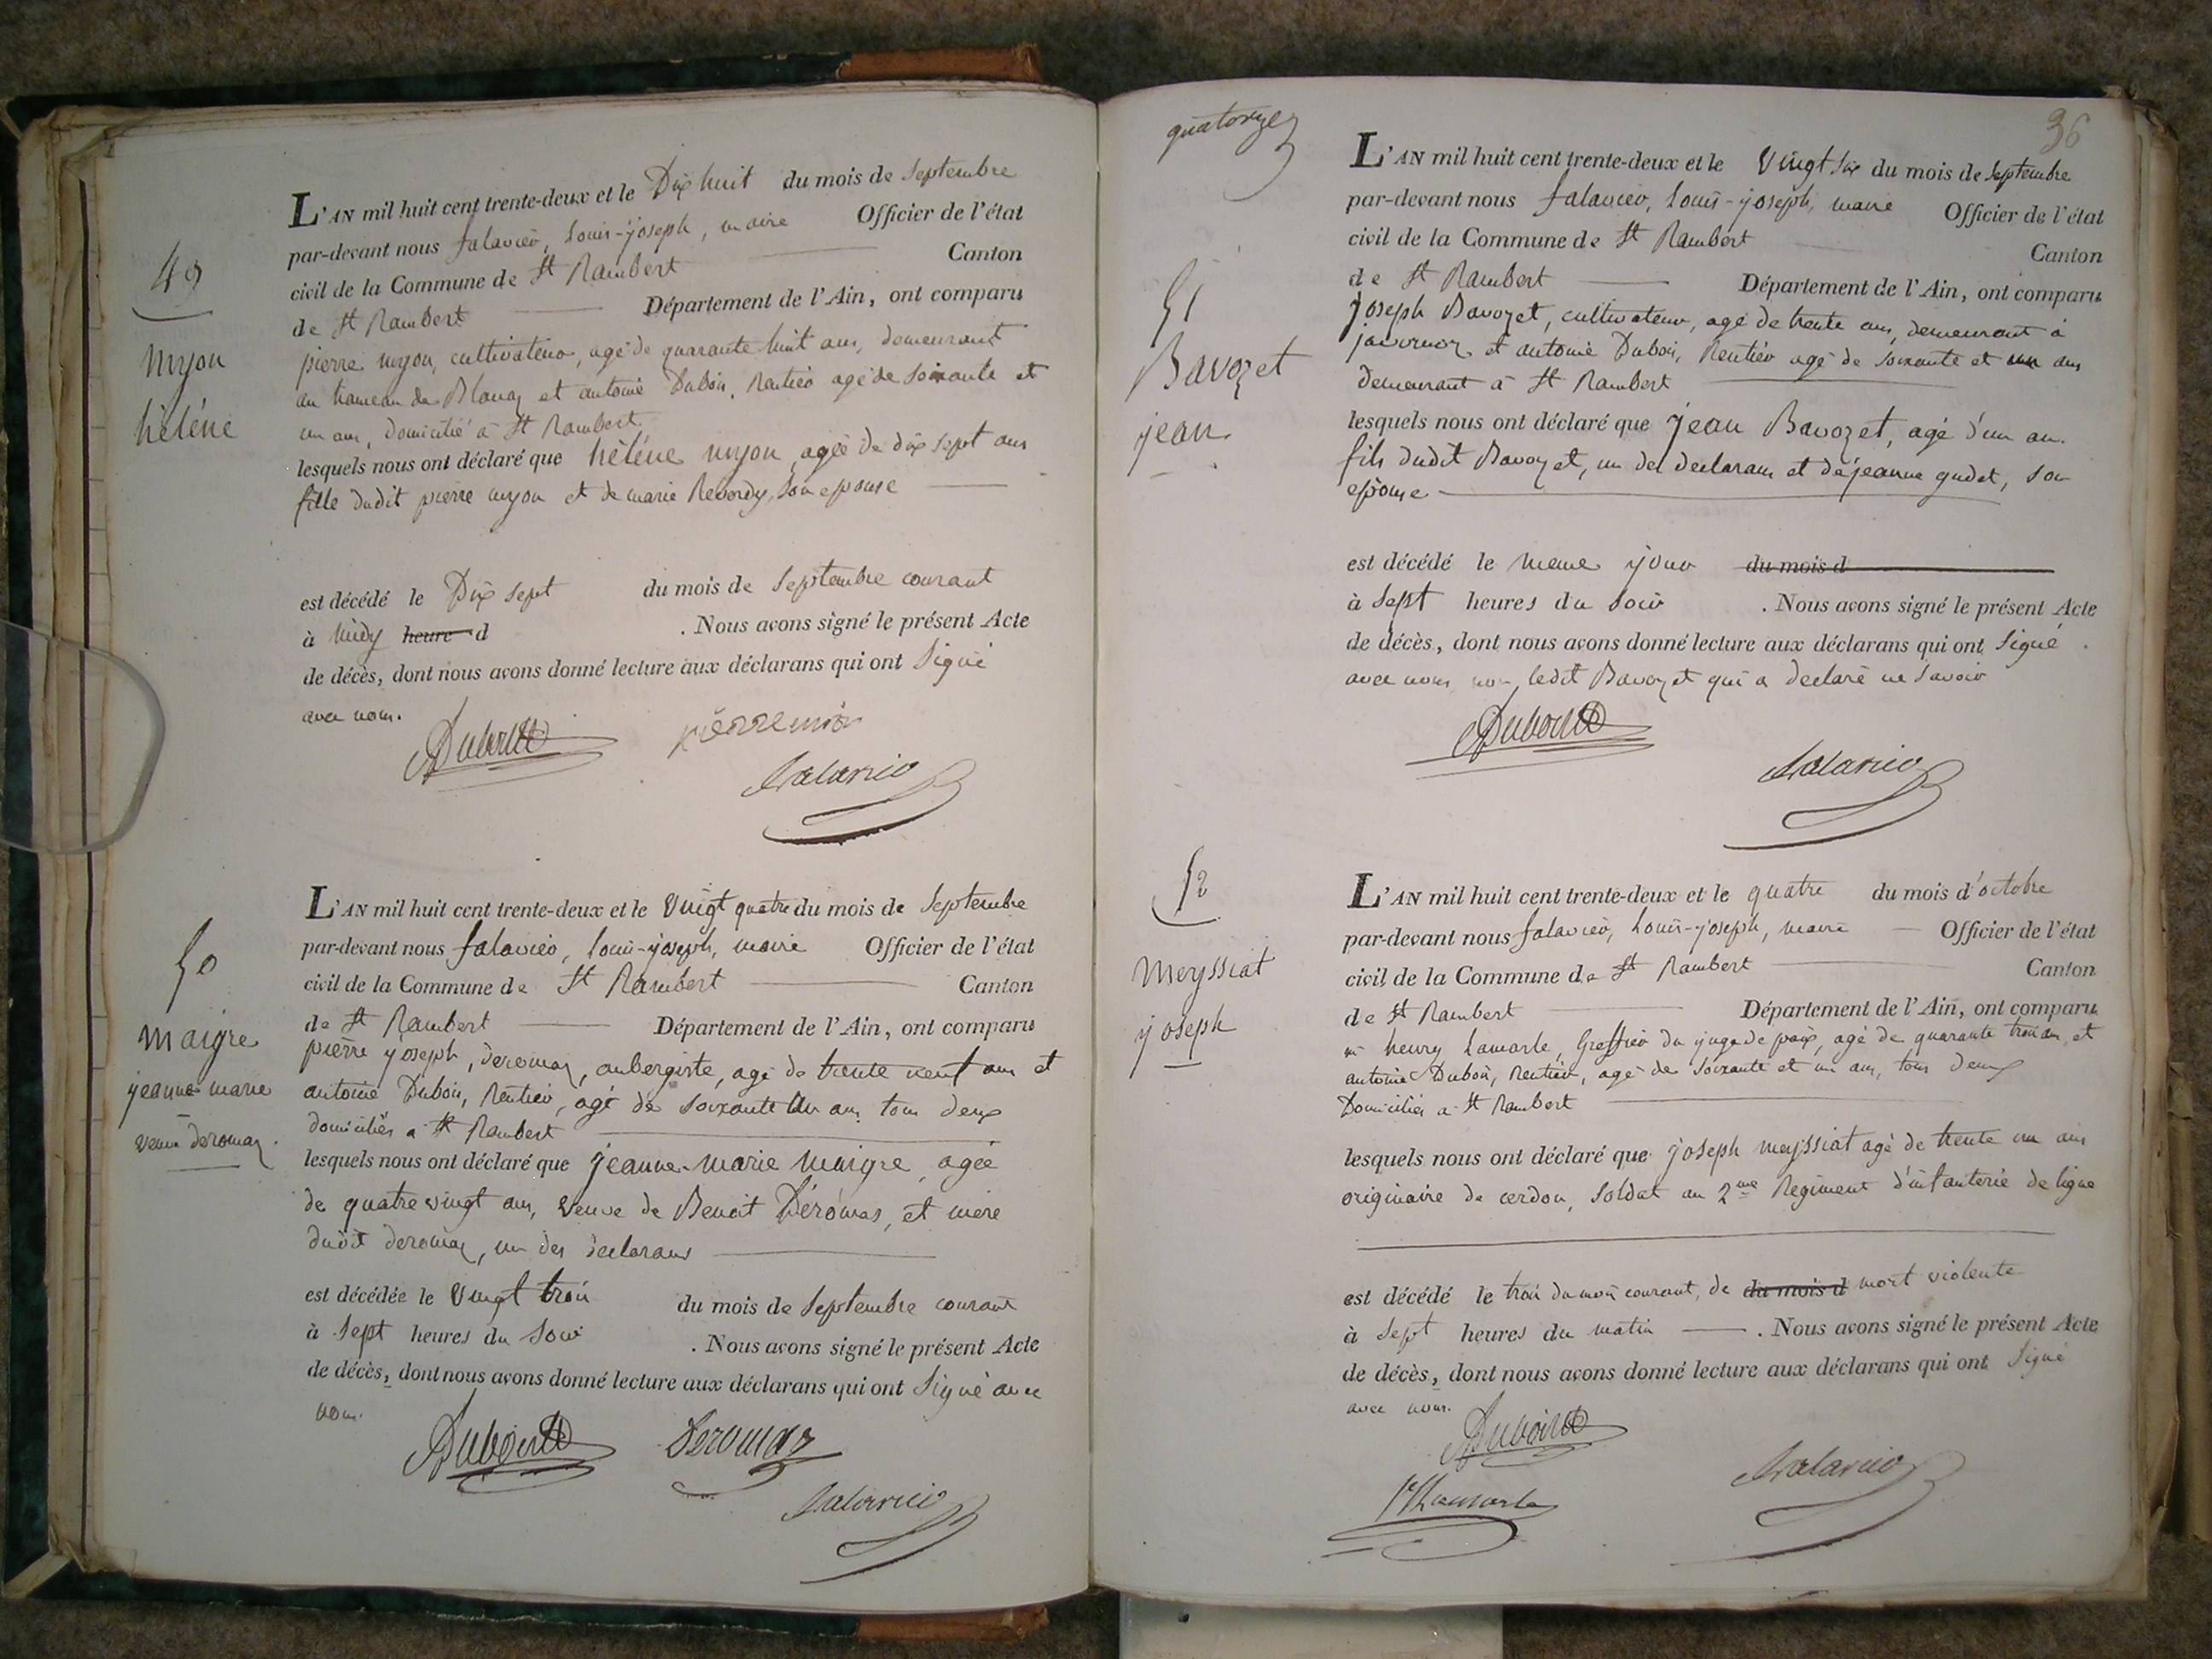 49
myon
hélène
L'AN mil huit cent trente-deux et le Dix huit du mois de Septembre
par-devant nous falavier, Louis-joseph, maire Officier de l'état
civil de la Commune de St Rambert Canton
de St Rambert Département de l'Ain, ont comparu
pierre myon, cultivateur, agé de quarante huit ans, demeurant
au hameau de Blanaz et antoine Dubois, Rentier agé de soixante et
un ans, domicilié à St Rambert
lesquels nous ont déclaré que hélène myon, agée de dix sept ans
fille dudit pierre myon et de marie Reverdy, son epouse
est décédé le Dix sept du mois de Septembre courant
à midy heure d . Nous avons signé le présent Acte
de décès, dont nous avons donné lecture aux déclarans qui ont Signé
avec nous.
Dubois pierre mion
falavier
50
maigre
jeanne marie
veuve deromaz.
L'AN mil huit cent trente-deux et le Vingt quatre du mois de Septembre
par-devant nous falavier, Louis-joseph, maire Officier de l'état
civil de la Commune de St Rambert Canton
de St Rambert Département de l'Ain, ont comparu
pierre joseph, deromaz, aubergiste, agé de trente neuf ans et
antoine Dubois, Rentier, agé de soixante un ans tous deux
domiciliés a St Rambert
lesquels nous ont déclaré que jeanne-marie maigre, agée
de quatre vingt ans, veuve de Benoit Déromas, et mère
dudit deromaz, un des déclarans
est décédée le Vingt trois du mois de Septembre courant
à Sept heures du Soir . Nous avons signé le présent Acte
de décès, dont nous avons donné lecture aux déclarans qui ont Signé avec
nous.
Dubois Deromaz
falavier
quatorze
36
51
Bavozet
jean.
L'AN mil huit cent trente-deux et le Vingt Six du mois de Septembre
par-devant nous falavier, Louis-joseph, maire Officier de l'état
civil de la Commune de St Rambert Canton
de St Rambert Département de l'Ain, ont comparu
joseph Bavozet, cultivateur, agé de trente ans, demeurant à
javornoz et antoine Dubois, Rentier agé de soixante et un ans
demeurant à St Rambert
lesquels nous ont déclaré que jean Bavozet, agé d'un an.
fils dudit Bavozet, un des declarans et de jeanne gudet, son
epouse
est décédé le meme jour du mois d
à Sept heures du Soir . Nous avons signé le présent Acte
de décès, dont nous avons donné lecture aux déclarans qui ont Signé .
avec nous non ledit Bavozet qui a declaré ne Savoir
Dubois
falavier
52
Meyssiat
joseph
L'AN mil huit cent trente-deux et le quatre du mois d'octobre
par-devant nous falavier, Louis-joseph, maire Officier de l'état
civil de la Commune de St Rambert Canton
de St Rambert Département de l'Ain, ont comparu
mr henry Lamarle, Greffier du juge de paix, agé de quarante trois ans, et
antoine Dubois, Rentier, agé de soixante et un ans, tous deux
Domiciliés a St Rambert
lesquels nous ont déclaré que joseph meyssiat agé de trente un ans
originaire de cerdon, Soldat au 2me Régiment d'infanterie de ligne
est décédé le trois du mois courant, de du mois d mort violente
à Sept heures du matin . Nous avons signé le présent Acte
de décès, dont nous avons donné lecture aux déclarans qui ont Signé
avec nous.
Dubois
falavier
Lamarle